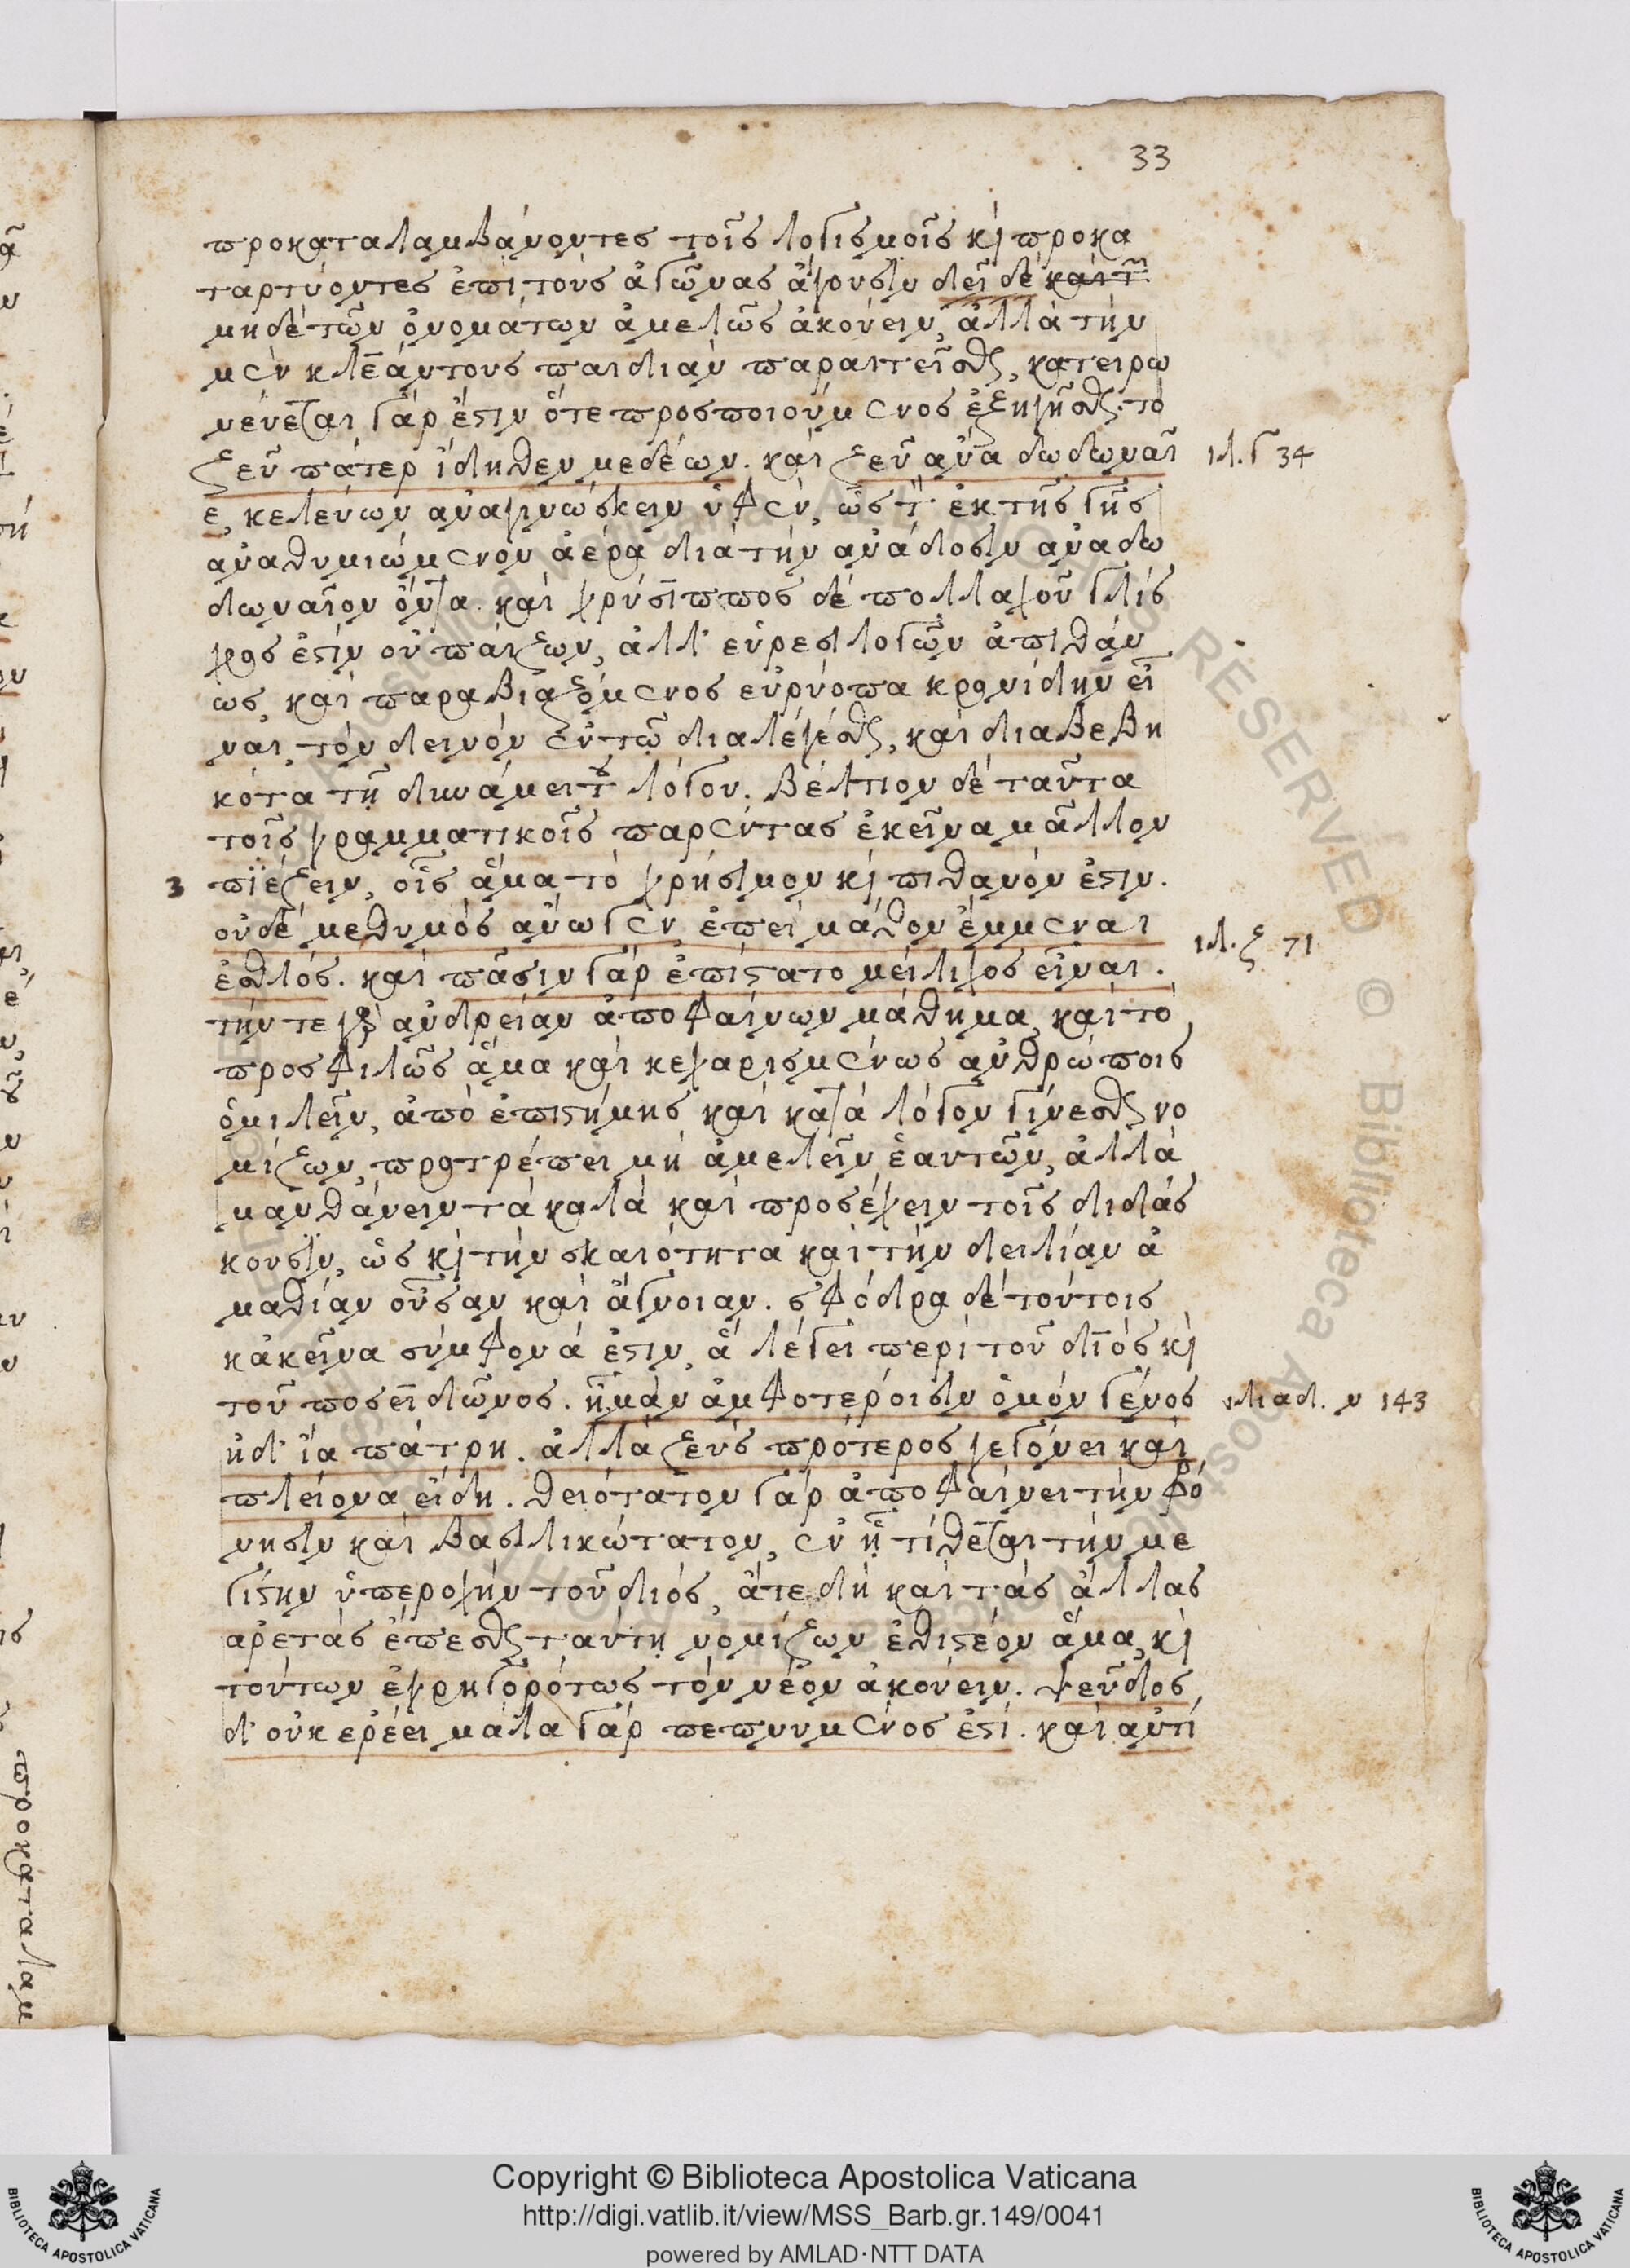 33
προκαταλαμβάνοντες τοῖς λογισμοῖς κὶ προκα
ταρτύοντες ἐπὶ τοὺς ἀγῶνας ἄγουσιν δεῖ δὲ
μηδὲ τῶν ὀνομάτων ἀμελῶς ἀκούειν, ἀλλὰ τὴν
μὲν κλεάντους παιδιὰν παραιτεῖσθαι, κατειρω
νεύεται γάρ ἐστιν ὅτε προσποιούμενος ἐξηγεῖσθαι τὸ
ζεῦ πάτερ ἴδηθεν μεδέων. καὶ ζεῦ ἄνα δωδωναῖ ιλ. γ 34
ε, κελεύων ἀναγινώσκειν ὑφέν, ὡς τὸν ἐκ τῆς γῆς
ἀναθυμιώμενον ἀέρα διὰ τὴν ἀνάδοσιν ἀναδω
δωναῖον ὄντα. καὶ χρύσιππος δὲ πολλαχοῦ γλίσ
χρος ἐστὶν οὐ παίζων, ἀλλ' εὑρεσιλογῶν ἀπιθάν
ως, καὶ παραβιαζόμενος εὐρύοπα κρονίδην εἶ
ναι, τὸν δεινὸν ἐν τῷ διαλέγεσθαι, καὶ διαβεβη
κότα τῇ δυνάμει τοῦ λόγου. βέλτιον δὲ ταῦτα
τοῖς γραμματικοῖς παρέντας ἐκεῖνα μᾶλλον
3 πιέζειν, οἷς ἅμα τὸ χρήσιμον κὶ πιθανόν ἐστιν.
οὐδέ με θυμὸς ἀνώγεν, ἐπεὶ μάθον ἔμμεναι ιλ. ζ 71
ἐσθλός. καὶ πᾶσιν γὰρ ἐπίστατο μείλιχος εἶναι.
τήν τε γὰρ ἀνδρείαν ἀποφαίνων μάθημα, καὶ τὸ
προσφιλῶς ἅμα καὶ κεχαρισμένως ἀνθρώποις
ὁμιλεῖν, ἀπὸ ἐπιστήμης καὶ κατὰ λόγον γίνεσθαι νο
μίζων, προτρέπει μὴ ἀμελεῖν ἑαυτῶν, ἀλλὰ
μανθάνειν τὰ καλὰ καὶ προσέχειν τοῖς διδάσ
κουσιν, ὡς κὶ τὴν σκαιότητα καὶ τὴν δειλίαν ἀ
μαθίαν οὖσαν καὶ ἄγνοιαν. σφόδρα δὲ τούτοις
κἀκεῖνα σύμφονά ἐστιν, ἃ λέγει περὶ τοῦ διὸς κὶ
τοῦ ποσειδῶνος. ἦ μὰν ἀμφοτέροισιν ὁμὸν γένος ιλιαδ. ν 143
ἠδ' ἴα πάτρη. ἀλλὰ ζεὺς πρότερος γεγόνει καὶ
πλείονα εἴδη. θειότατον γὰρ ἀποφαίνει τὴν φρό
νησιν καὶ βασιλικώτατον, ἐν ᾗ τίθεται τὴν με
γίστην ὑπεροχὴν τοῦ διός, ἅτε δὴ καὶ τὰς ἄλλας
ἀρετὰς ἕπεσθαι ταύτῃ νομίζων ἐθιστέον ἅμα, κὶ
τούτων ἐχρηγορότως τὸν νέον ἀκούειν. ψεῦδος
δ' οὐκ ἐρέει μάλα γὰρ πεπνυμένος ἐστί. καὶ ἀντί
προκαταλαμ
Copyright © Biblioteca Apostolica Vaticana
http://digi.vatlib.it/view/MSS_Barb.gr.149/0041
powered by AMLAD·NTT DATA
BIBLIOTECA APOSTOLICA VATICANA
BIBLIOTECA APOSTOLICA VATICANA